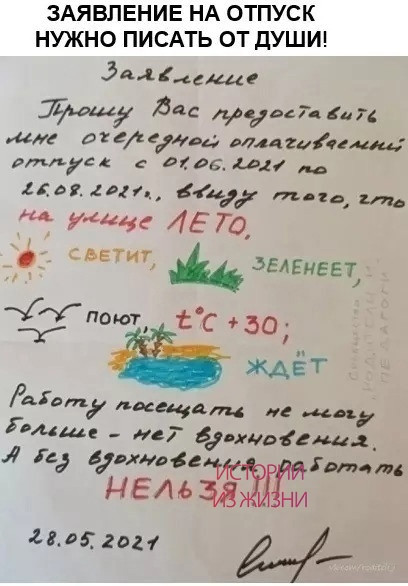 ЗАЯВЛЕНИЕ НА ОТПУСК
НУЖНО ПИСАТЬ ОТ ДУШИ!
Заявление
Прошу Вас предоставить
мне очередной оплачиваемый
отпуск с 01.06.2021 по
26.08.2021г., ввиду того, что
на улице ЛЕТО,
СВЕТИТ,
ЗЕЛЕНЕЕТ,
ПОЮТ, t°C +30;
ЖДЁТ
РОДИТЕЛИ И
ПЕДАГОГИ
Работу посещать не могу
больше - нет вдохновения.
А без вдохновения работать
НЕЛЬЗЯ !!!
ИСТОРИИ
ИЗ ЖИЗНИ
28.05.2021